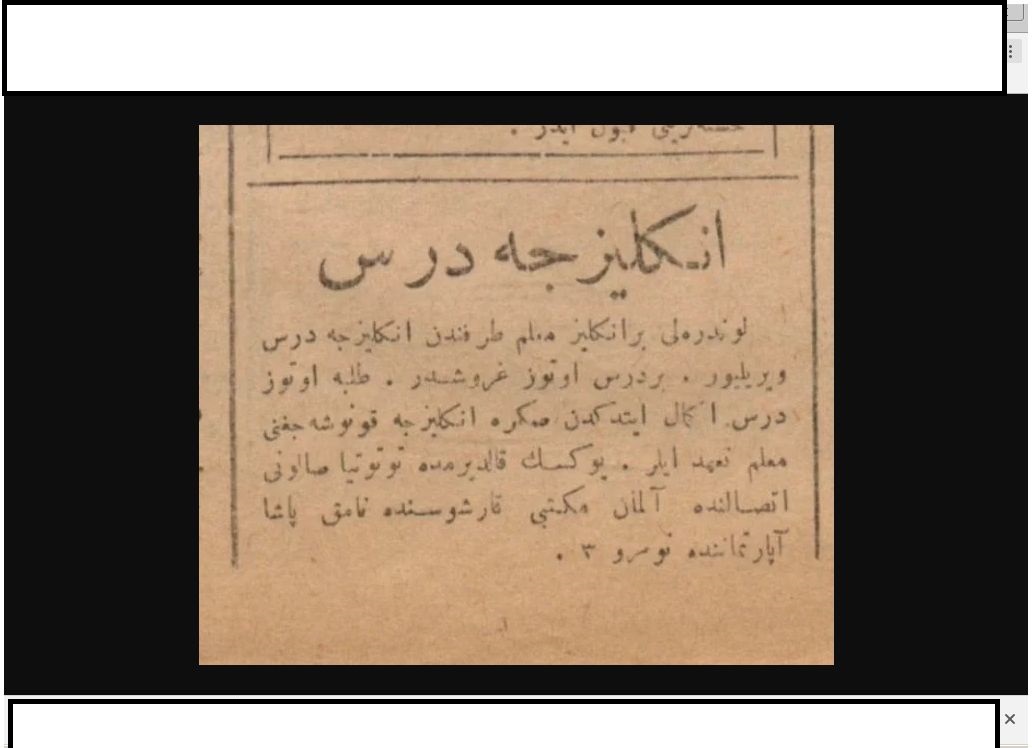 خسته‌لرینی قبول ایدر .
انکلیزجه درس
لوندره‌لی برانکلیز معلم طرفندن انکلیزجه درس
ویریلیور . بردرس اوتوز غروشدر . طلبه اوتوز
درس اکمال ایتدکدن صکره انکلیزجه قونوشه‌جغنی
معلم تعهد ایلر . یوکسك قالدیرمده توتونیا صالونی
اتصالنده آلمان مکتبی قارشوسنده نامق پاشا
آپارتماننده نومرو ٣ .